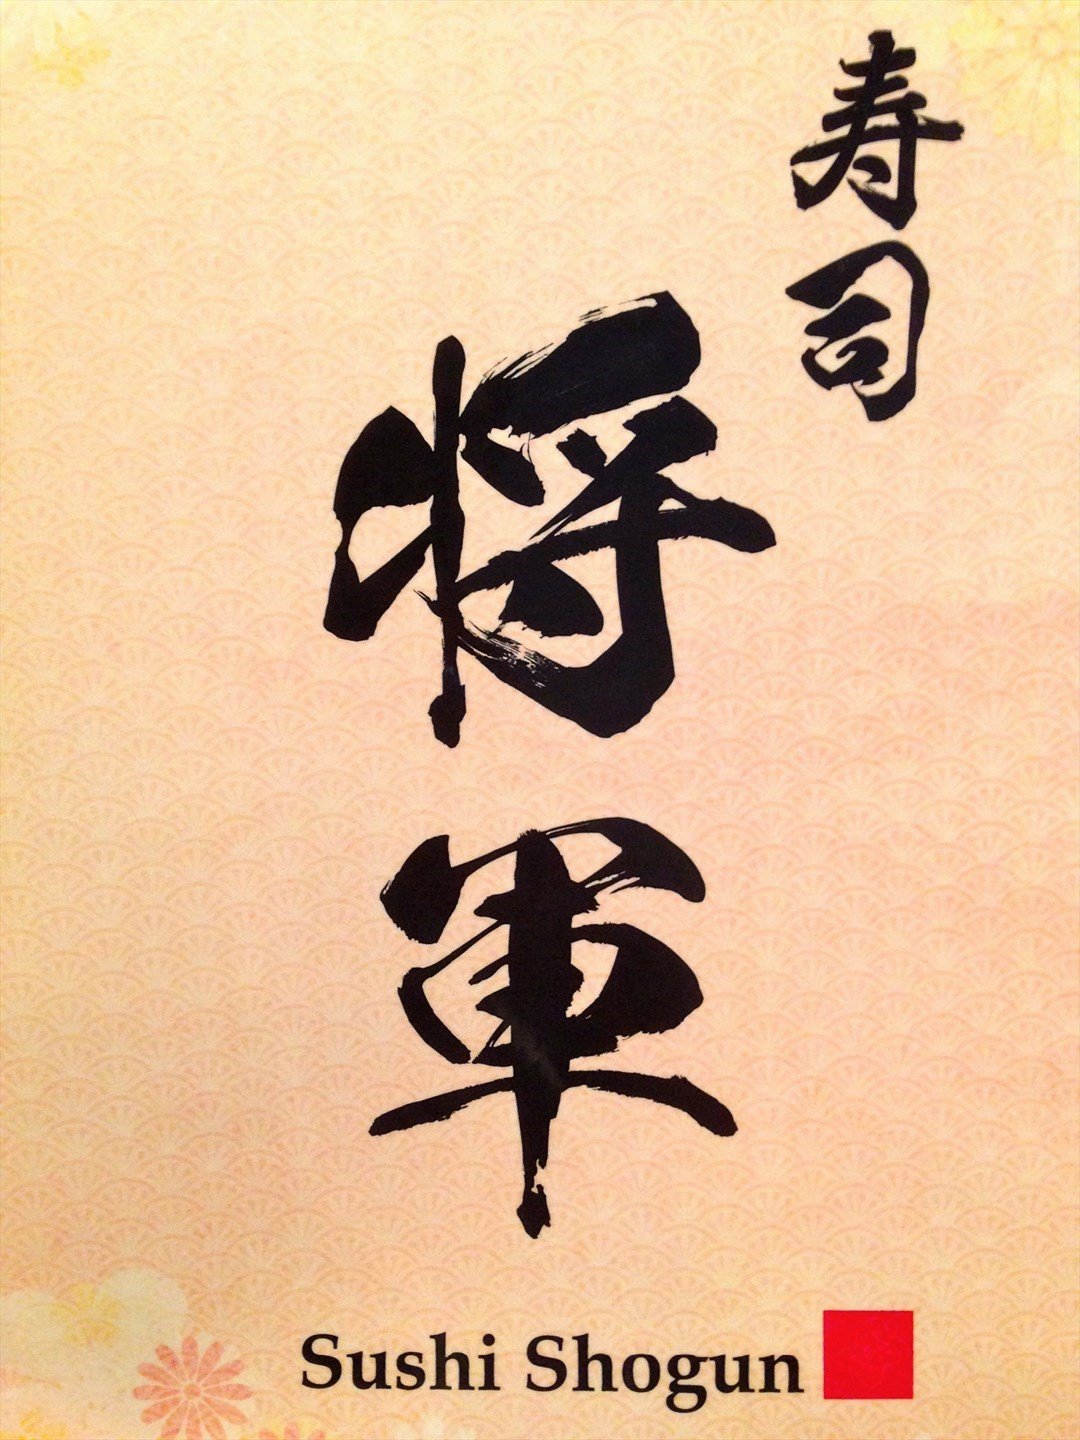 寿司
将軍
Sushi Shogun